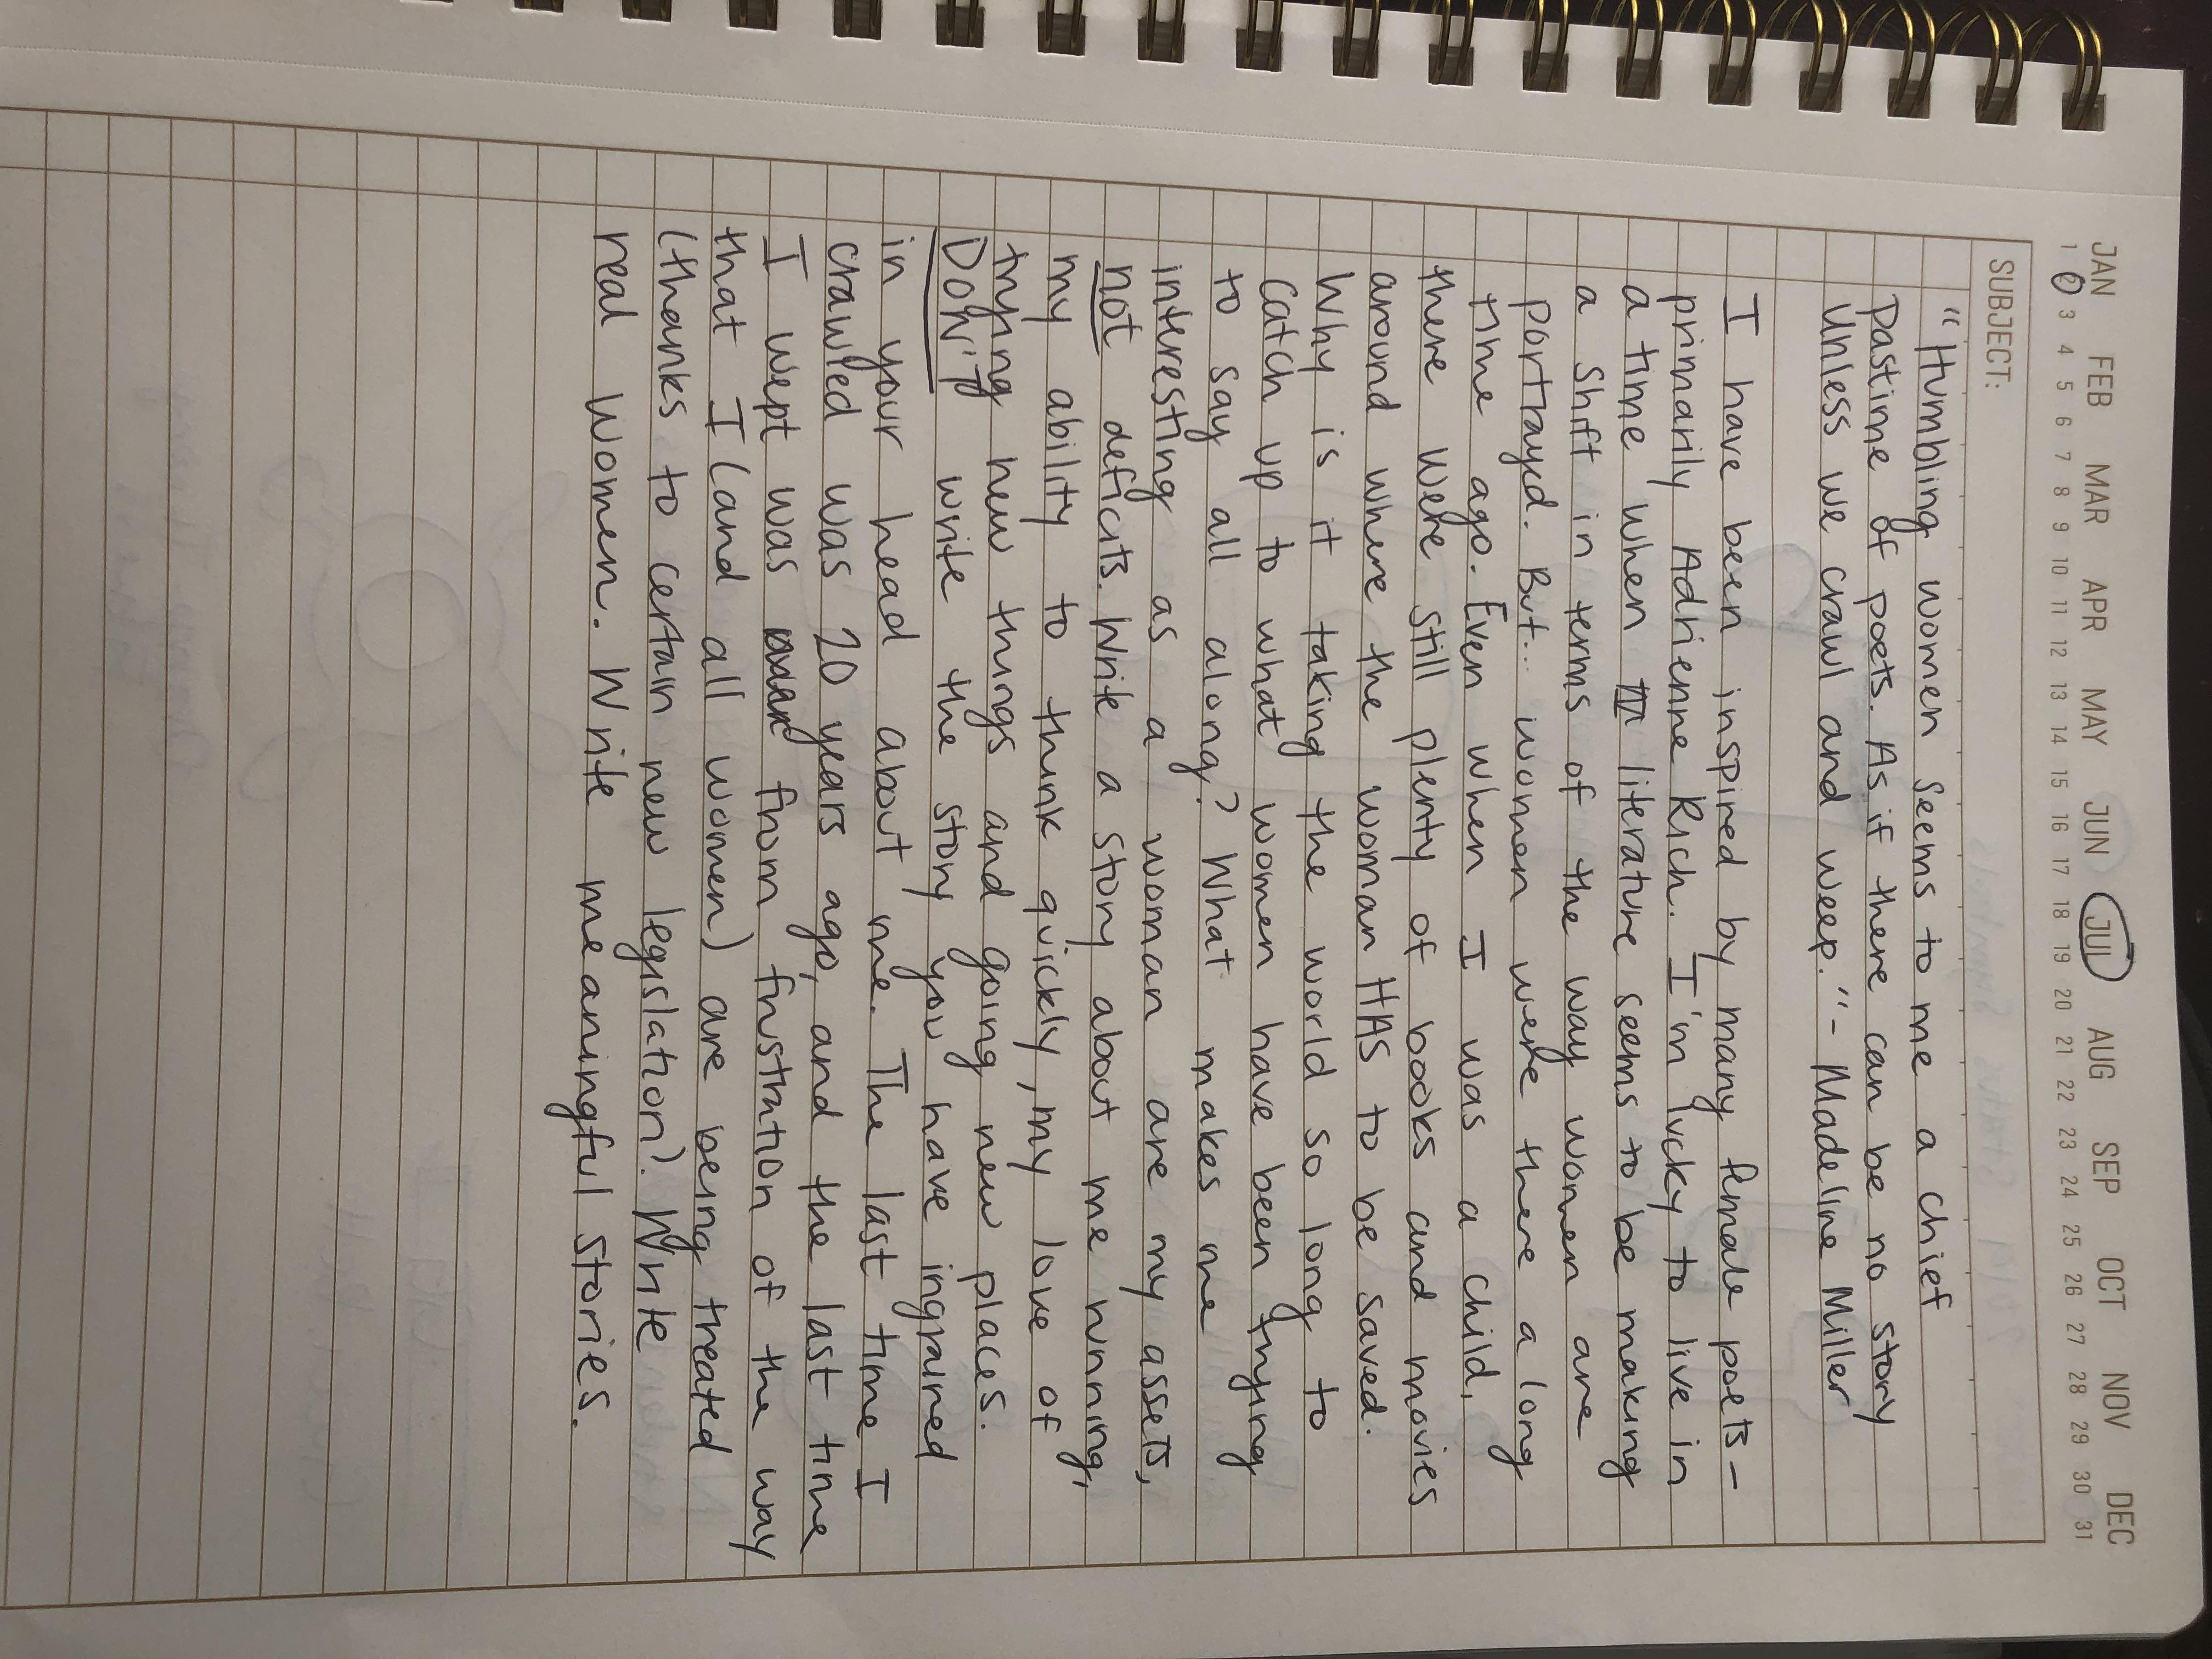 JAN FEB MAR APR MAY JUN JUL AUG SEP OCT NOV DEC
1 2 3 4 5 6 7 8 9 10 11 12 13 14 15 16 17 18 19 20 21 22 23 24 25 26 27 28 29 30 31
SUBJECT:
"Humbling women seems to me a chief
pastime of poets. As if there can be no story
unless we crawl and weep." - Madeline Miller
I have been inspired by many female poets -
primarily Adrienne Rich. I'm lucky to live in
a time when literature seems to be making
a shift in terms of the way women are
portrayed. But... women were there a long
time ago. Even when I was a child,
there were still plenty of books and movies
around where the woman HAS to be saved.
Why is it taking the world so long to
catch up to what women have been trying
to say all along? What makes me
interesting as a woman are my assets,
not deficits. Write a story about me running,
my ability to think quickly, my love of
trying new things and going new places.
DON'T write the story you have ingrained
in your head about me. The last time I
crawled was 20 years ago, and the last time
I wept was from frustration of the way
that I (and all women) are being treated
(thanks to certain new legislation). Write
real women. Write meaningful stories.